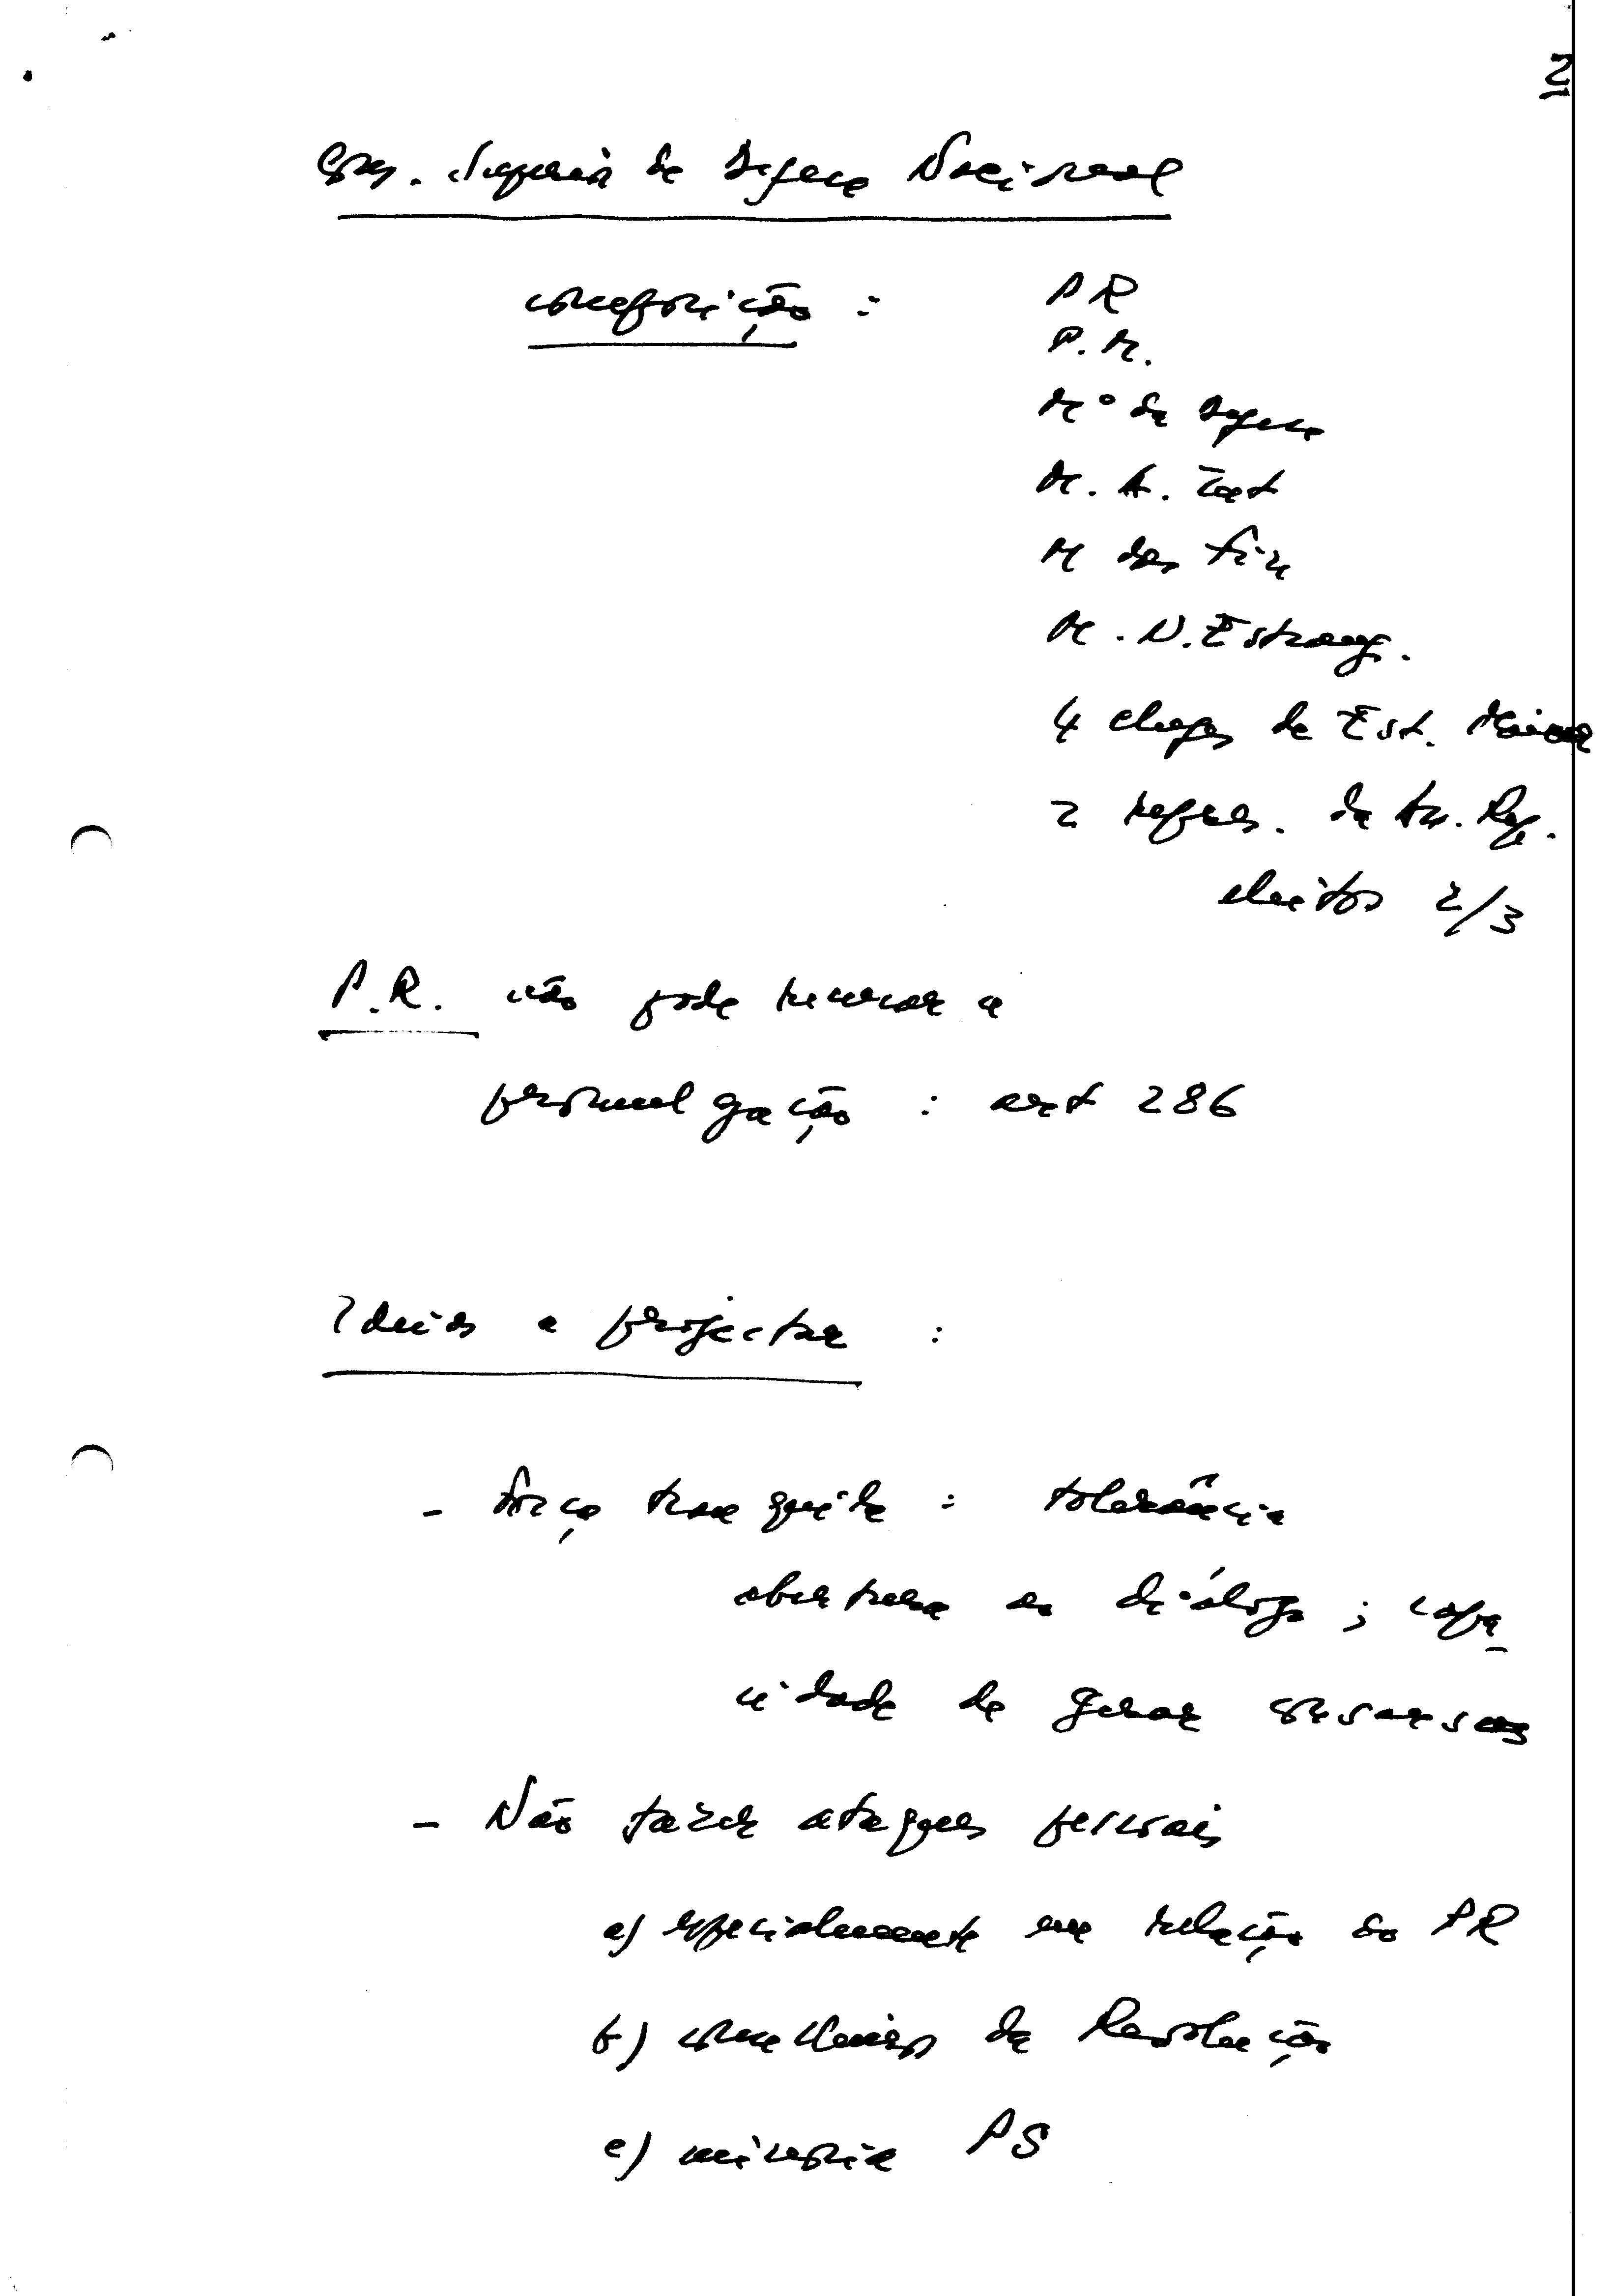 2
Con. Superior de Defesa Nacional
composição :
PR
P.M.
Mº da Defesa
M. A. Int
M das Fin
M. N. Estrang.
4 chefes de Est. Maior
2 repres. da As. Rep.
eleitos 2/3
P.R. não pode recusar a
promulgação : art 286
Ideias a projectar :
- força tranquila : tolerância
abertura ao diálogo ; capa
cidade de gerar consensos
- Não fazer ataques pessoais
a) especialmente em relação ao PR
b) conselheiros da Revolução
c) minoria PS